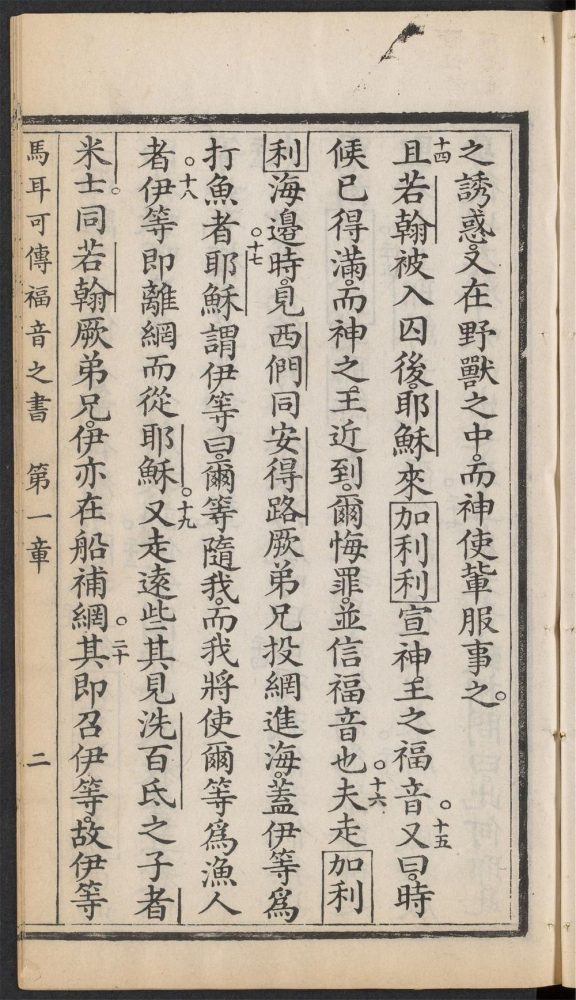 之誘惑。又在野獸之中。而神使軰服事之。
十四且若翰被入囚後。耶穌來加利利宣神王之福音。十五又曰。時
候已得滿。而神之王近到。爾悔罪。並信福音也。十六夫走加利
利海邊時。十七見西們同安得路厥弟兄投網進海。蓋伊等為
打魚者。耶穌謂伊等曰。爾等隨我。而我將使爾等為漁人
者。十八伊等即離網而從耶穌。十九又走遠些。其見洗百氐之子者
米士。同若翰厥弟兄。伊亦在船補網。二十其即召伊等。故伊等
馬耳可傳福音之書 第一章 二